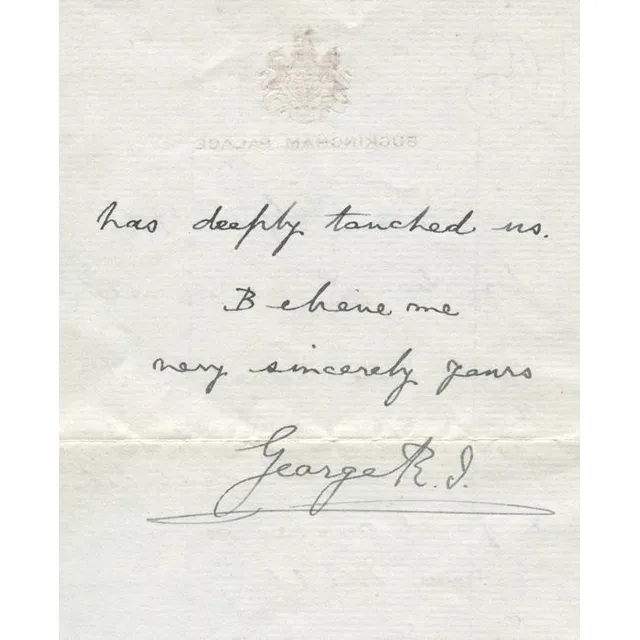 BUCKINGHAM PALACE
has deeply touched us.
Believe me
very sincerely yours
George R.I.